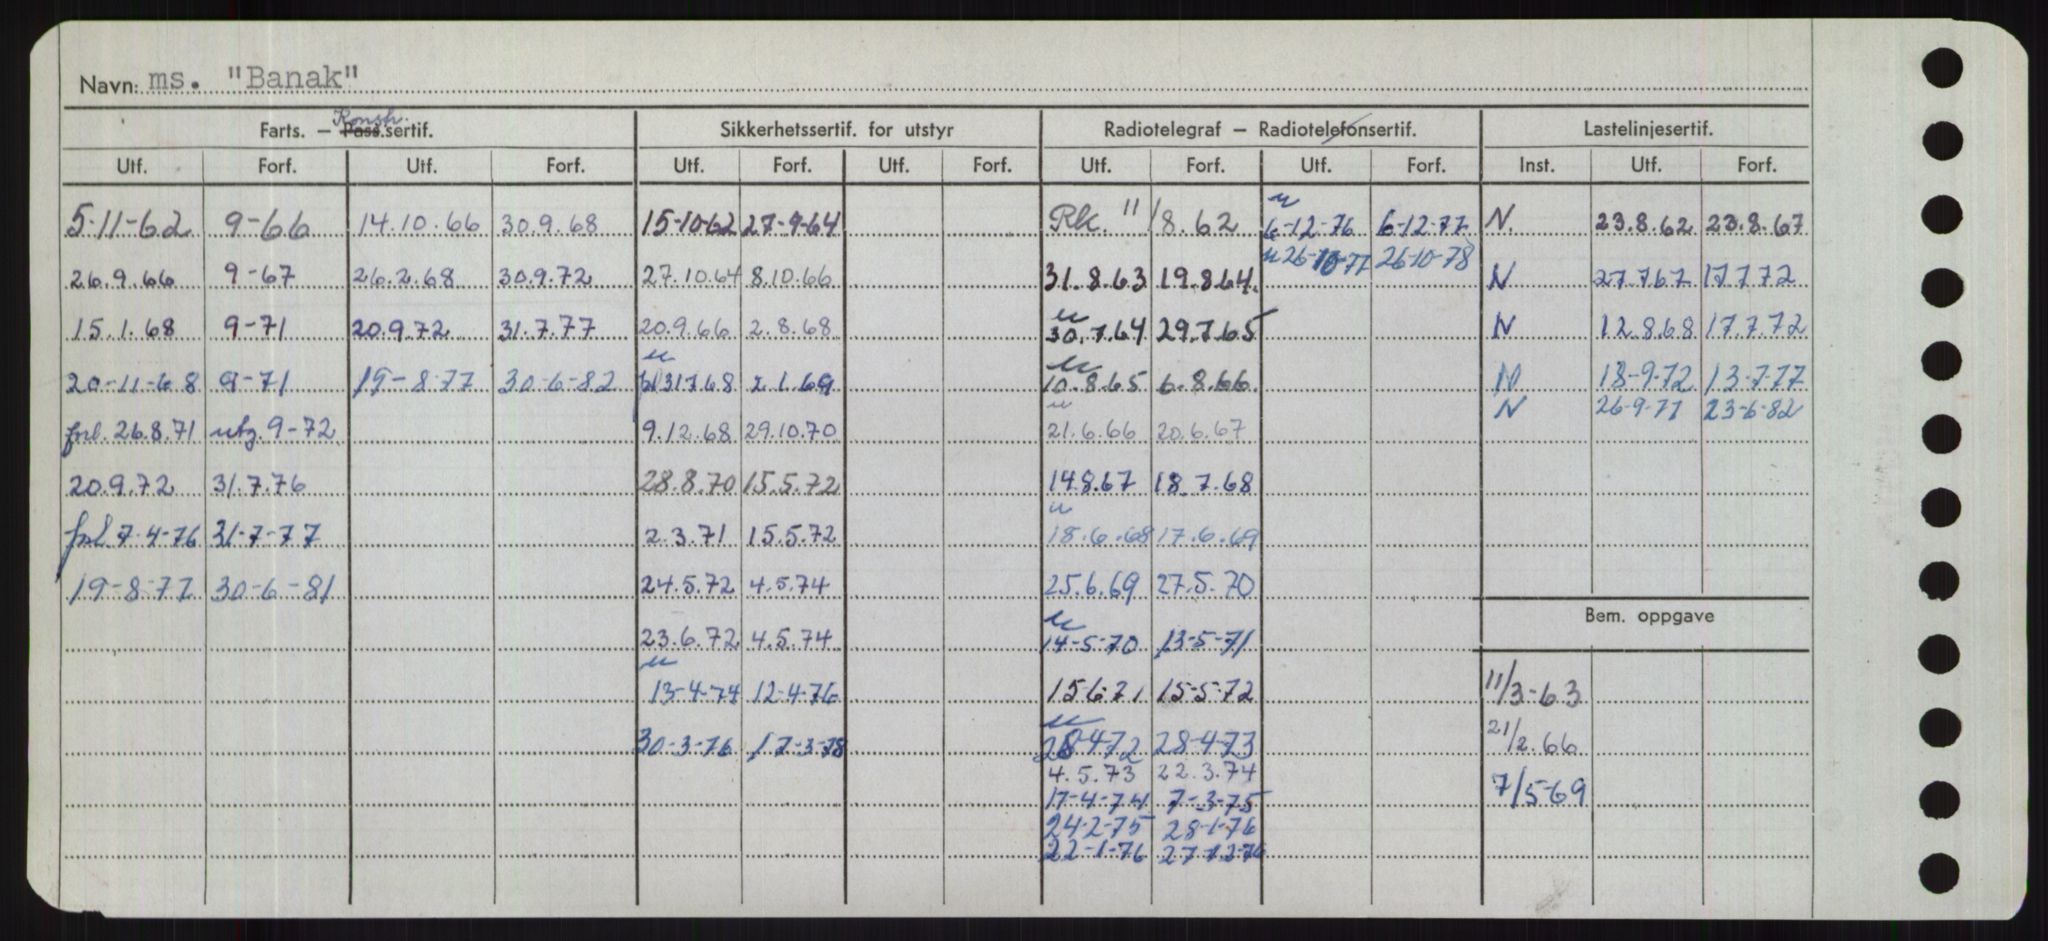 Navn: ms. "Banak"
Farts. – Pass.sertif. Konstr. Sikkerhetssertif. for utstyr Radiotelegraf – Radiotelefonsertif. Lastelinjesertif.
Utf. Forf. Utf. Forf. Utf. Forf. Utf. Forf. Utf. Forf. Utf. Forf. Inst. Utf. Forf.
5-11-62 9-66 14.10.66 30.9.68 15-10-62 27-9-64 Rk. 11/8.62 u 6-12-76 6-12-77 N 23.8.62 23.8.67
u 26-10-77 26-10-78
26.9.66 9-67 26.2.68 30.9.72 27.10.64 8.10.66 31.8.63 19.8.64. N 27.7.67 17.7.72
15.1.68 9-71 20.9.72 31.7.77 20.9.66 2.8.68 u 30.7.64 29.7.65 N 12.8.68 17.7.72
20-11-68 9-71 19-8-77 30-6-82 u 31.7.68 2.1.69 u 10.8.65 6.8.66 N 13-9-72 13-7-77
N 26-9-77 23-6-82
forl. 26.8.71 utg. 9-72 9.12.68 29.10.70 u 21.6.66 20.6.67
20.9.72 31.7.76 28.8.70 15.5.72 14.8.67 18.7.68
forl. 7-4-76 31-7-77 2.3.71 15.5.72 u 18.6.68 17.6.69
19-8-77 30-6-81 24.5.72 4.5.74 25.6.69 27.5.70
Bem. oppgave
23.6.72 4.5.74 u 14-5-70 13-5-71
u 13-4-74 12-4-76 15.6.71 15-5-72 11/3-63
30-3-76 17-3-78 u 28-4-72 28-4-73 21/2.66
4.5.73 22.3.74
17-4-74 7-3-75 7/5-69
24-2-75 28-1-76
22-1-76 27-12-76